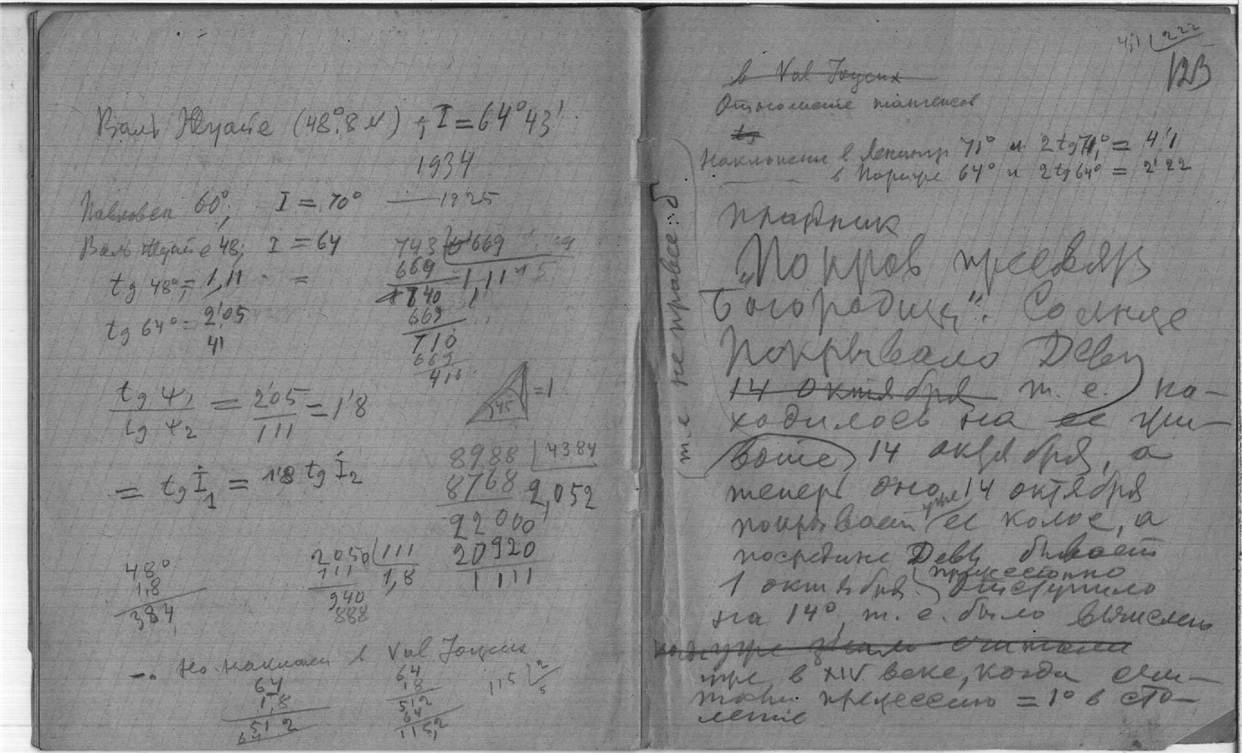 Валь Жуайе (48°.8 N) ; I = 64°43'
1934
Павловск 60°; I = 70° — 1925
Валь Жуайе 48; I = 64
tg 48° = 1,11 =
tg 64° = 2'05
41
743 | 0'669
669 1,11
740
669
710
669
45 = 1
tg ψ1 / tg ψ2 = 205 / 111 = 1'8
= tg I1 = 1'8 tg I2
8988 | 4384
8768 2,052
22000
20920
1111
48°
1,8
384
2050 | 111
111 1,8
940
888
в Val Joyeux
64
1,8
512
64
1,8
512
64
115,2
115 | 2
5
4,11 | 2,22
123
в Val Joyeux
Отношение тангенсов
tg
Наклонение в Ленингр 71° и 2tg71° = 4'1
в Париже 64° и 2tg64° = 2'22
т.е. не правее: б
праздник
"Покров пресвяв
Богородицы". Солнце
Покрывало Деву
14 октября т. е. на-
ходилось на ее
14 октября, а
теперь оно уже 14 октября
покрывает ее колос, а
посредине Девы бывает
1 октября. прецессионно
отступило
на 14°, т. е. было вычислено
уже в XIV веке, когда счи-
тали прецессию = 1° в сто-
летие